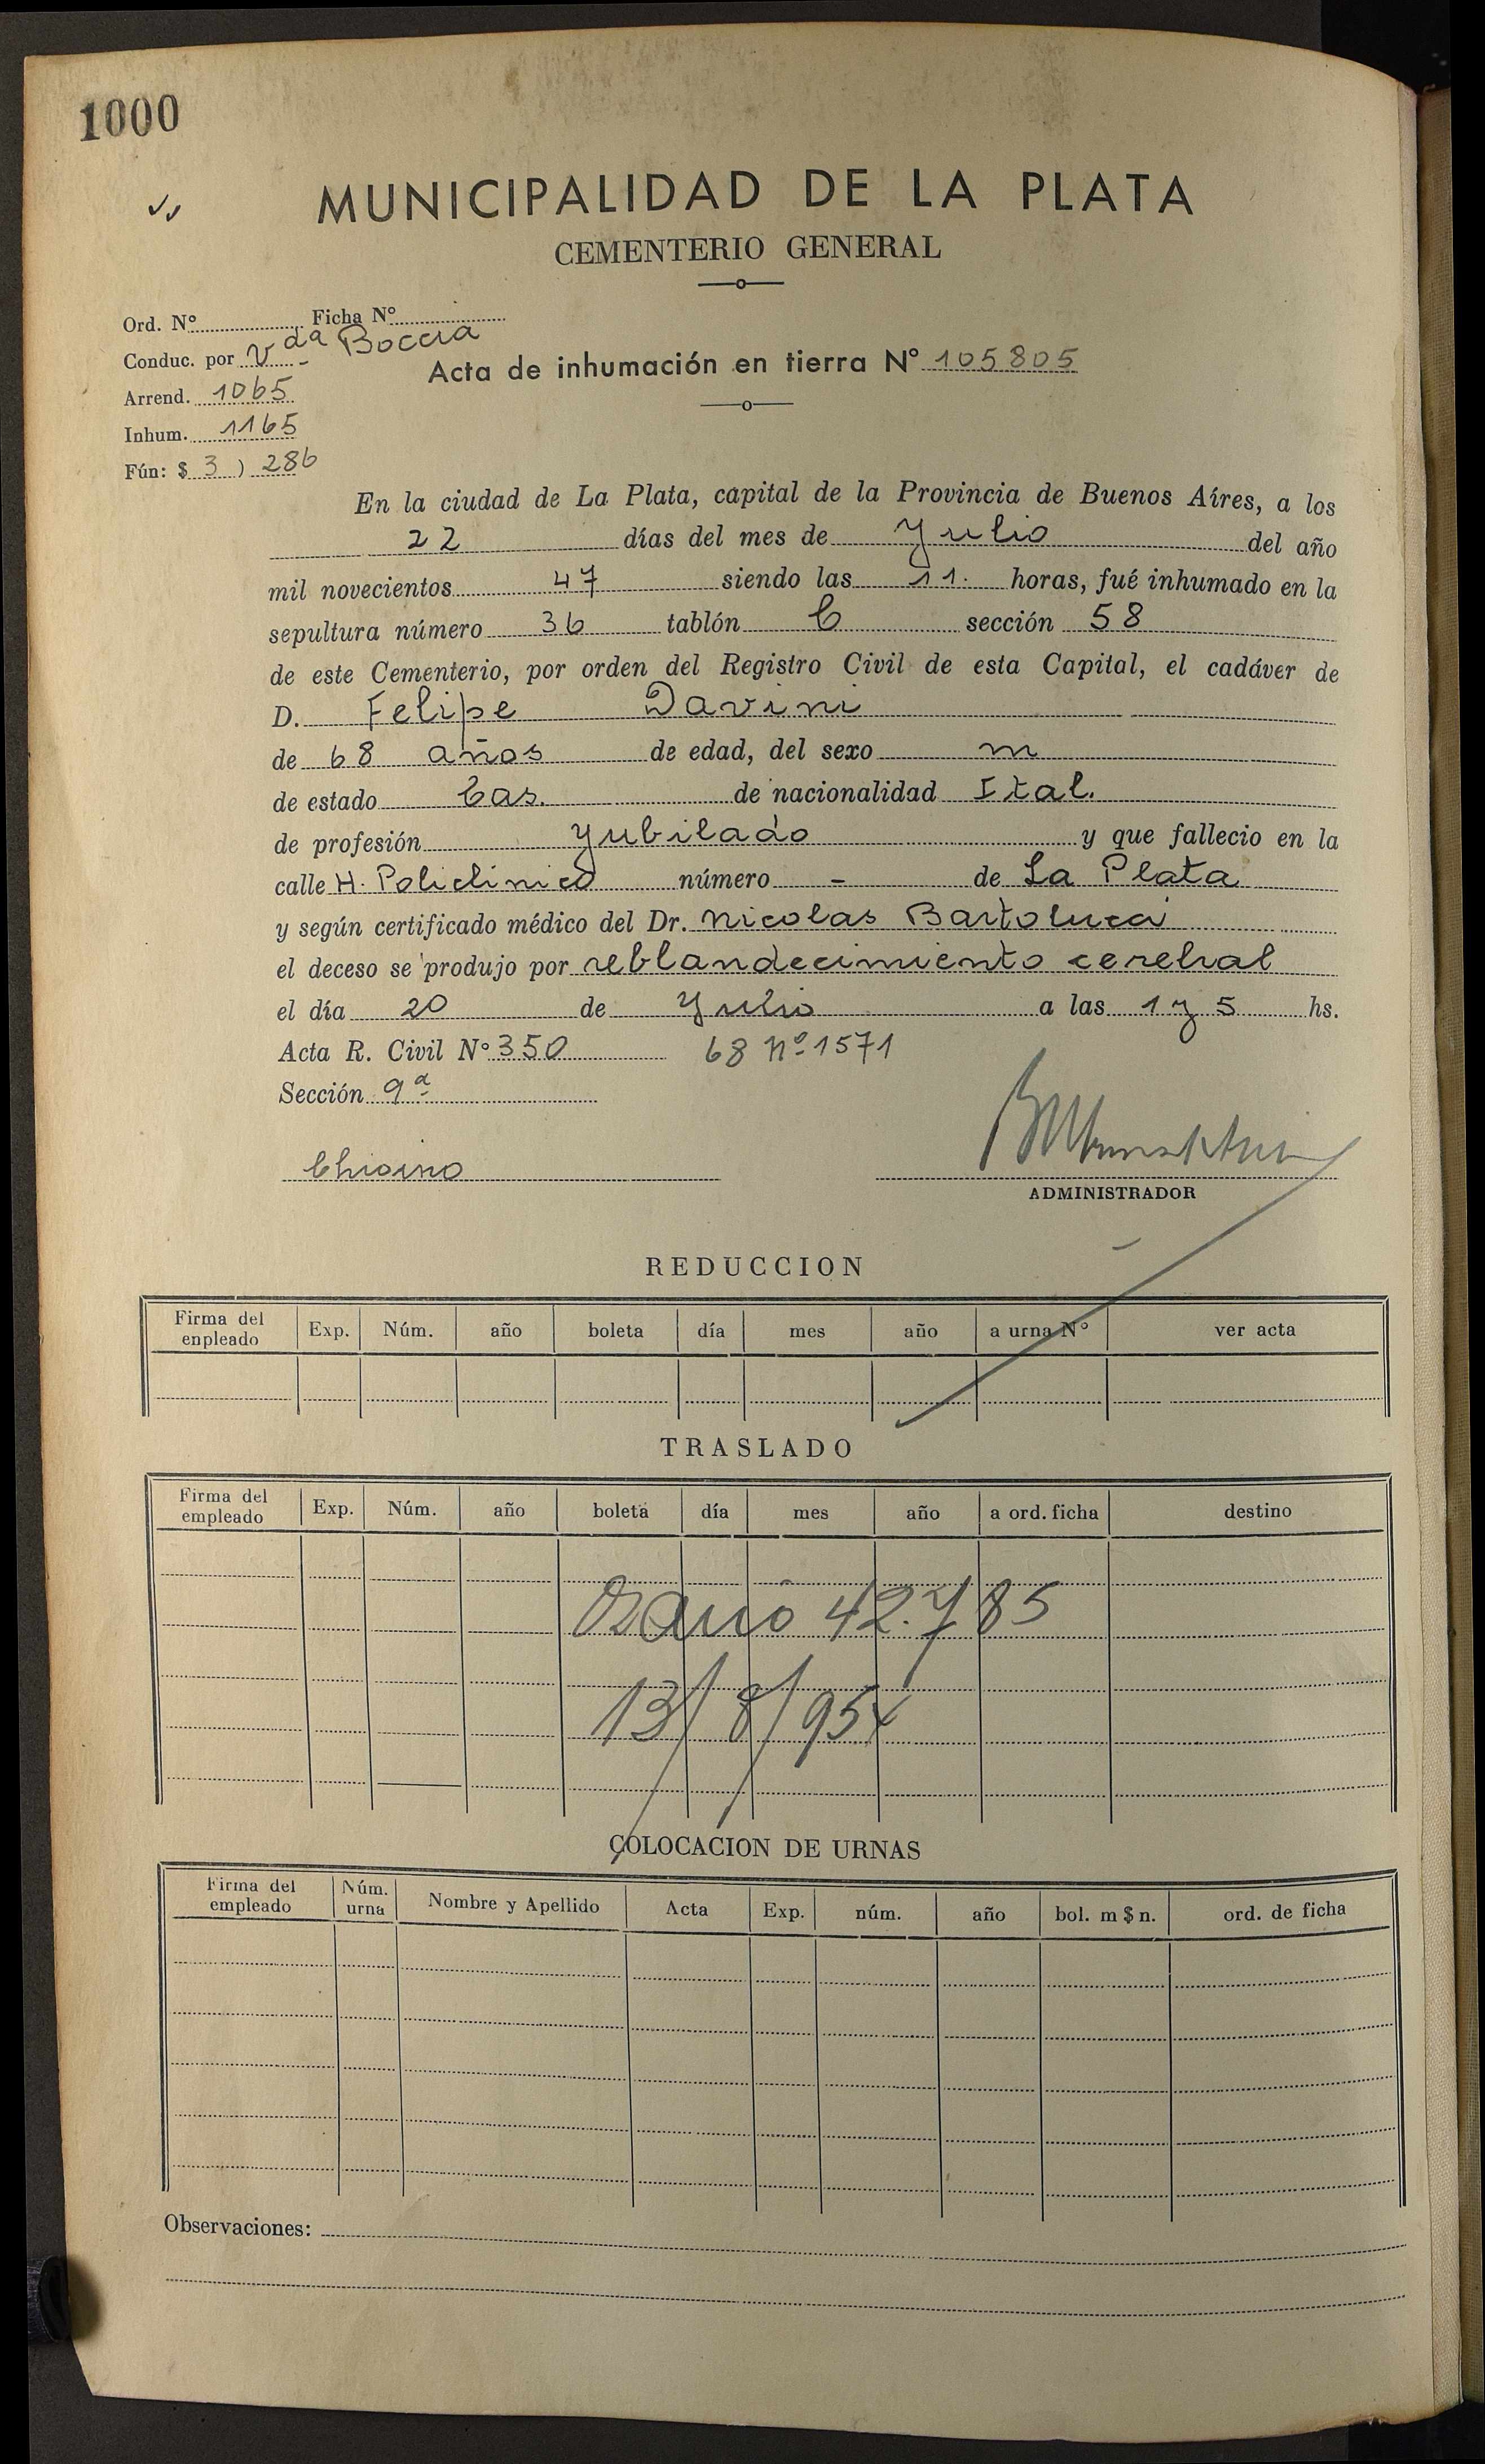 1000
MUNICIPALIDAD DE LA PLATA
CEMENTERIO GENERAL
Ord. Nº Ficha Nº
Conduc. por Vda Boccia
Acta de inhumación en tierra Nº 105805
Arrend. 1065
Inhum. 1165
Fún: $ 3 ) 286
En la ciudad de La Plata, capital de la Provincia de Buenos Aires, a los
22 días del mes de Julio del año
mil novecientos 47 siendo las 11. horas, fué inhumado en la
sepultura número 36 tablón C sección 58
de este Cementerio, por orden del Registro Civil de esta Capital, el cadáver de
D. Felipe Davini
de 68 años de edad, del sexo m
de estado Cas. de nacionalidad Ital.
de profesión Jubilado y que fallecio en la
calle H. Policlinico número - de La Plata
y según certificado médico del Dr. Nicolas Bartolucci
el deceso se produjo por reblandecimiento cerebral
el día 20 de Julio a las 1 y 5 hs.
Acta R. Civil Nº 350 68 Nº 1571
Sección 9ª
Chioino
ADMINISTRADOR
REDUCCION
Firma del enpleado Exp. Núm. año boleta día mes año a urna Nº ver acta
TRASLADO
Firma del empleado Exp. Núm. año boleta día mes año a ord. ficha destino
Osario 42.785
13/8/954
COLOCACION DE URNAS
Firma del empleado Núm. urna Nombre y Apellido Acta Exp. núm. año bol. m $ n. ord. de ficha
Observaciones: